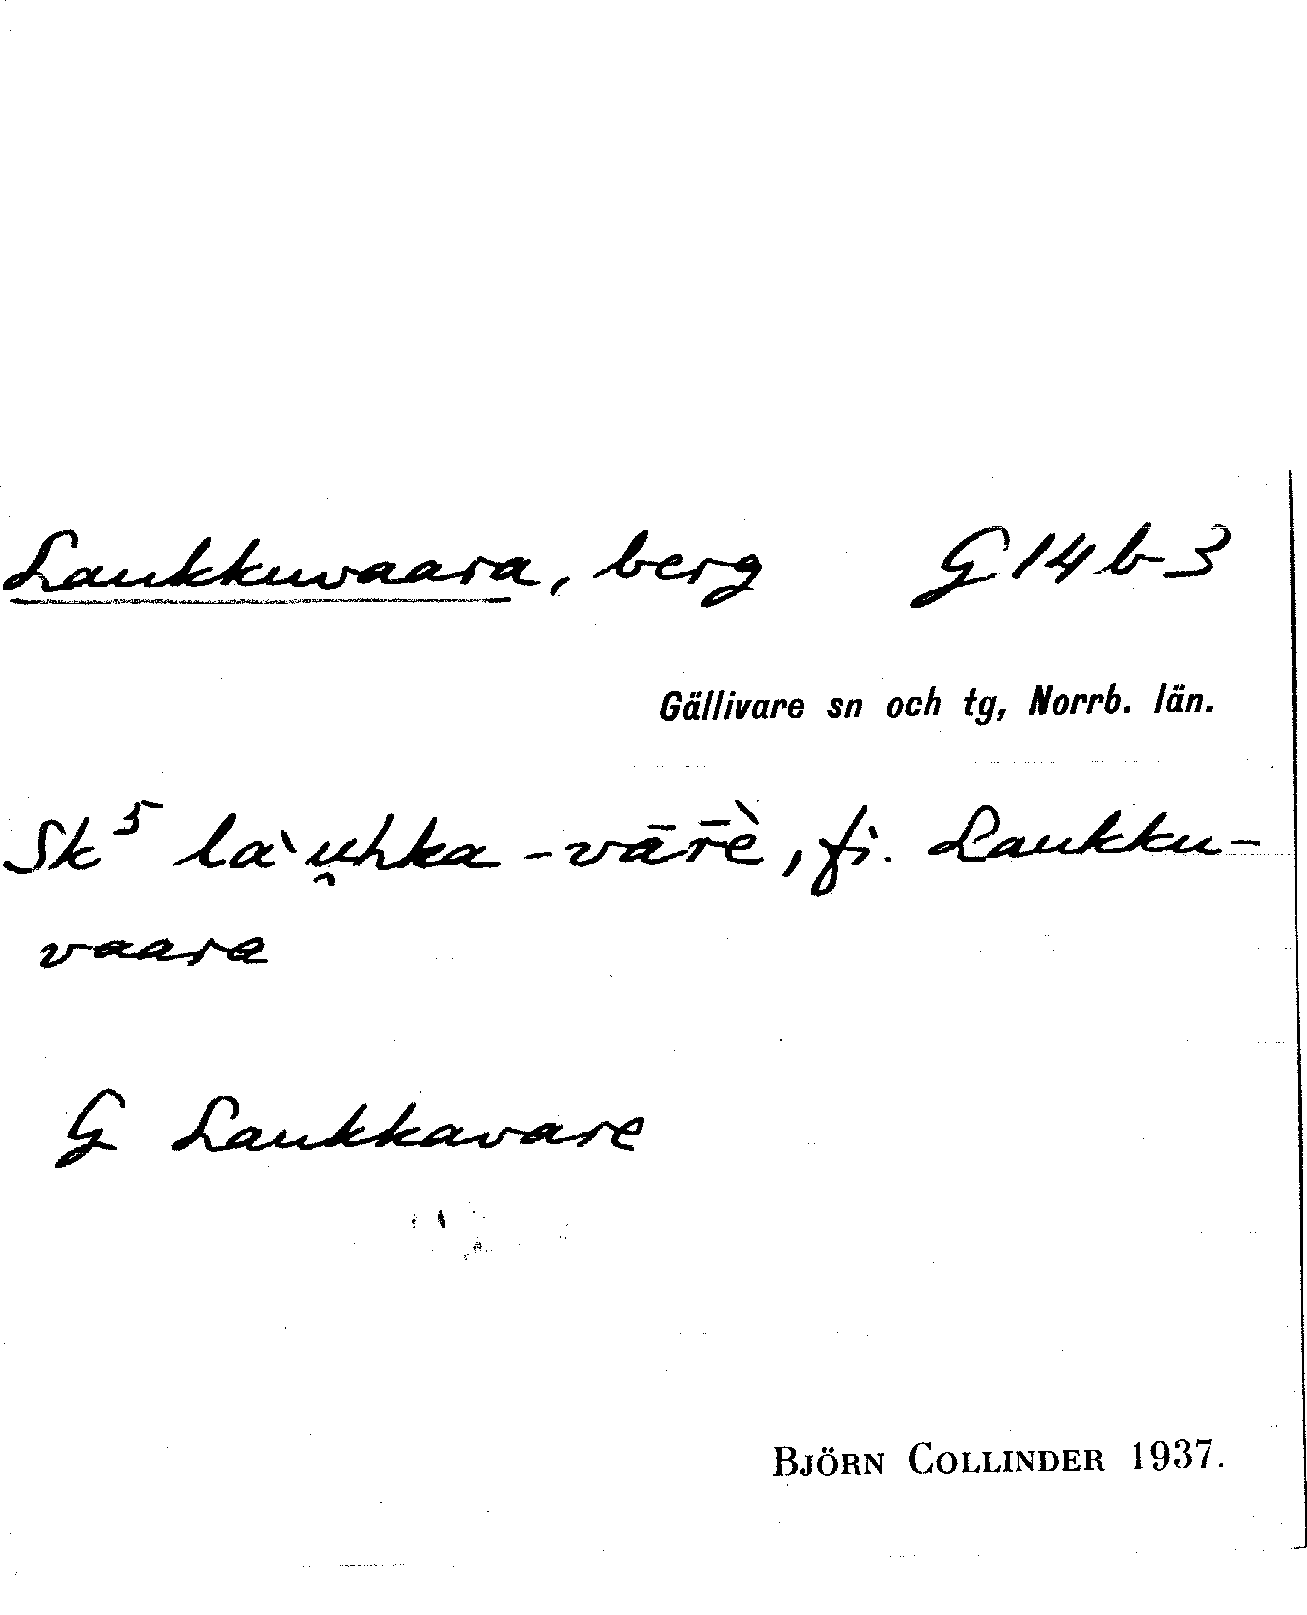 Laukkuvaara, berg G 14 b 3
Gällivare sn och tg, Norrb. län.
Sk⁵ la`u̯hka-vār̄è, fi. Laukku-
vaara
G Laukkavare
BJÖRN COLLINDER 1937.